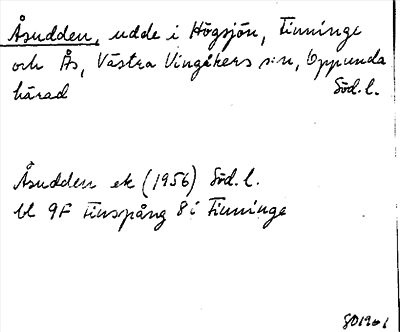 Åsudden, udde i Högsjön, Finninge
och Ås, Västra Vingåkers s:n, Oppunda
härad Söd.l.
Åsudden ek (1956) Söd.l.
bl 9F Finspång 8i Finninge